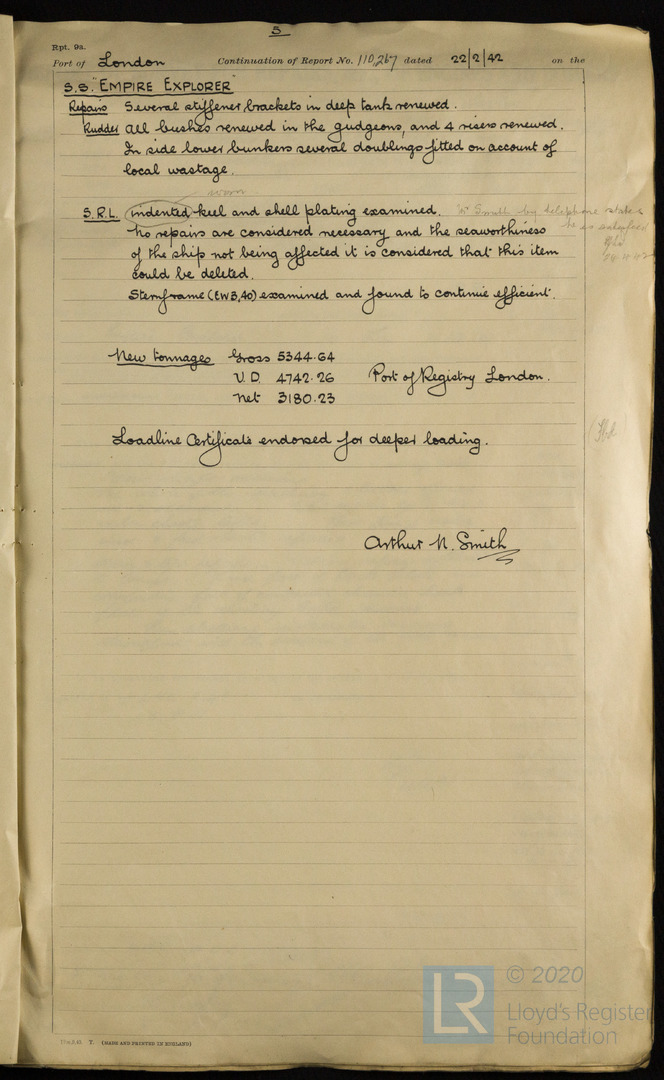 5
Rpt. 9a.
Port of London Continuation of Report No. 110,267 dated 22/2/42 on the
S.S. "EMPIRE EXPLORER"
Repairs Several stiffener brackets in deep tank renewed.
Rudder All bushes renewed in the gudgeons, and 4 risers renewed.
In side lower bunkers several doublings fitted on account of
local wastage.
worn
S.R.L. indented keel and shell plating examined. Mr Smith by telephone states
he is satisfied
No repairs are considered necessary and the seaworthiness
of the ship not being affected it is considered that this item
could be deleted.
Sternframe (EW 3,40) examined and found to continue efficient.
New tonnages Gross 5344.64
U.D. 4742.26 Port of Registry London.
Net 3180.23
Loadline Certificate endorsed for deeper loading.
Arthur N. Smith
T. (MADE AND PRINTED IN ENGLAND)
LR © 2020
Lloyd's Register
Foundation